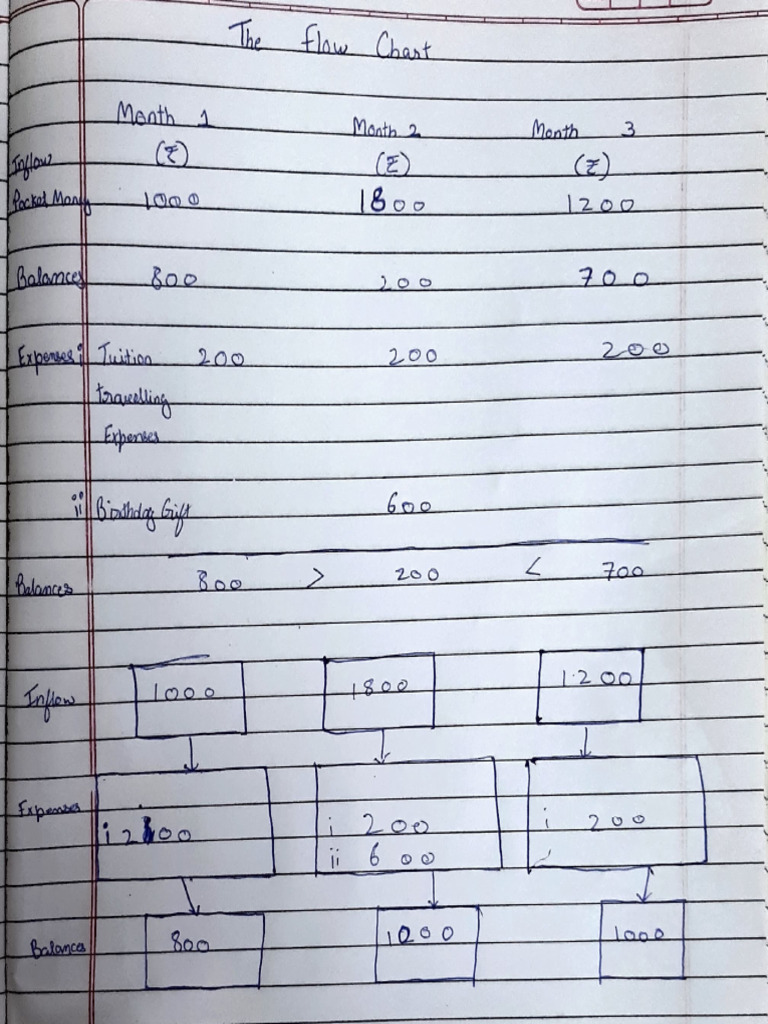 The Flow Chart
Month 1 Month 2 Month 3
Inflow (₹) (₹) (₹)
Pocket Money 1000 1800 1200
Balances 800 200 700
Expenses i Tuition 200 200 200
travelling
Expenses
ii Birthday Gift 600
Balances 800 > 200 < 700
Inflow 1000 1800 1200
Expenses i 200 i 200 i 200
ii 600
Balances 800 1000 1000